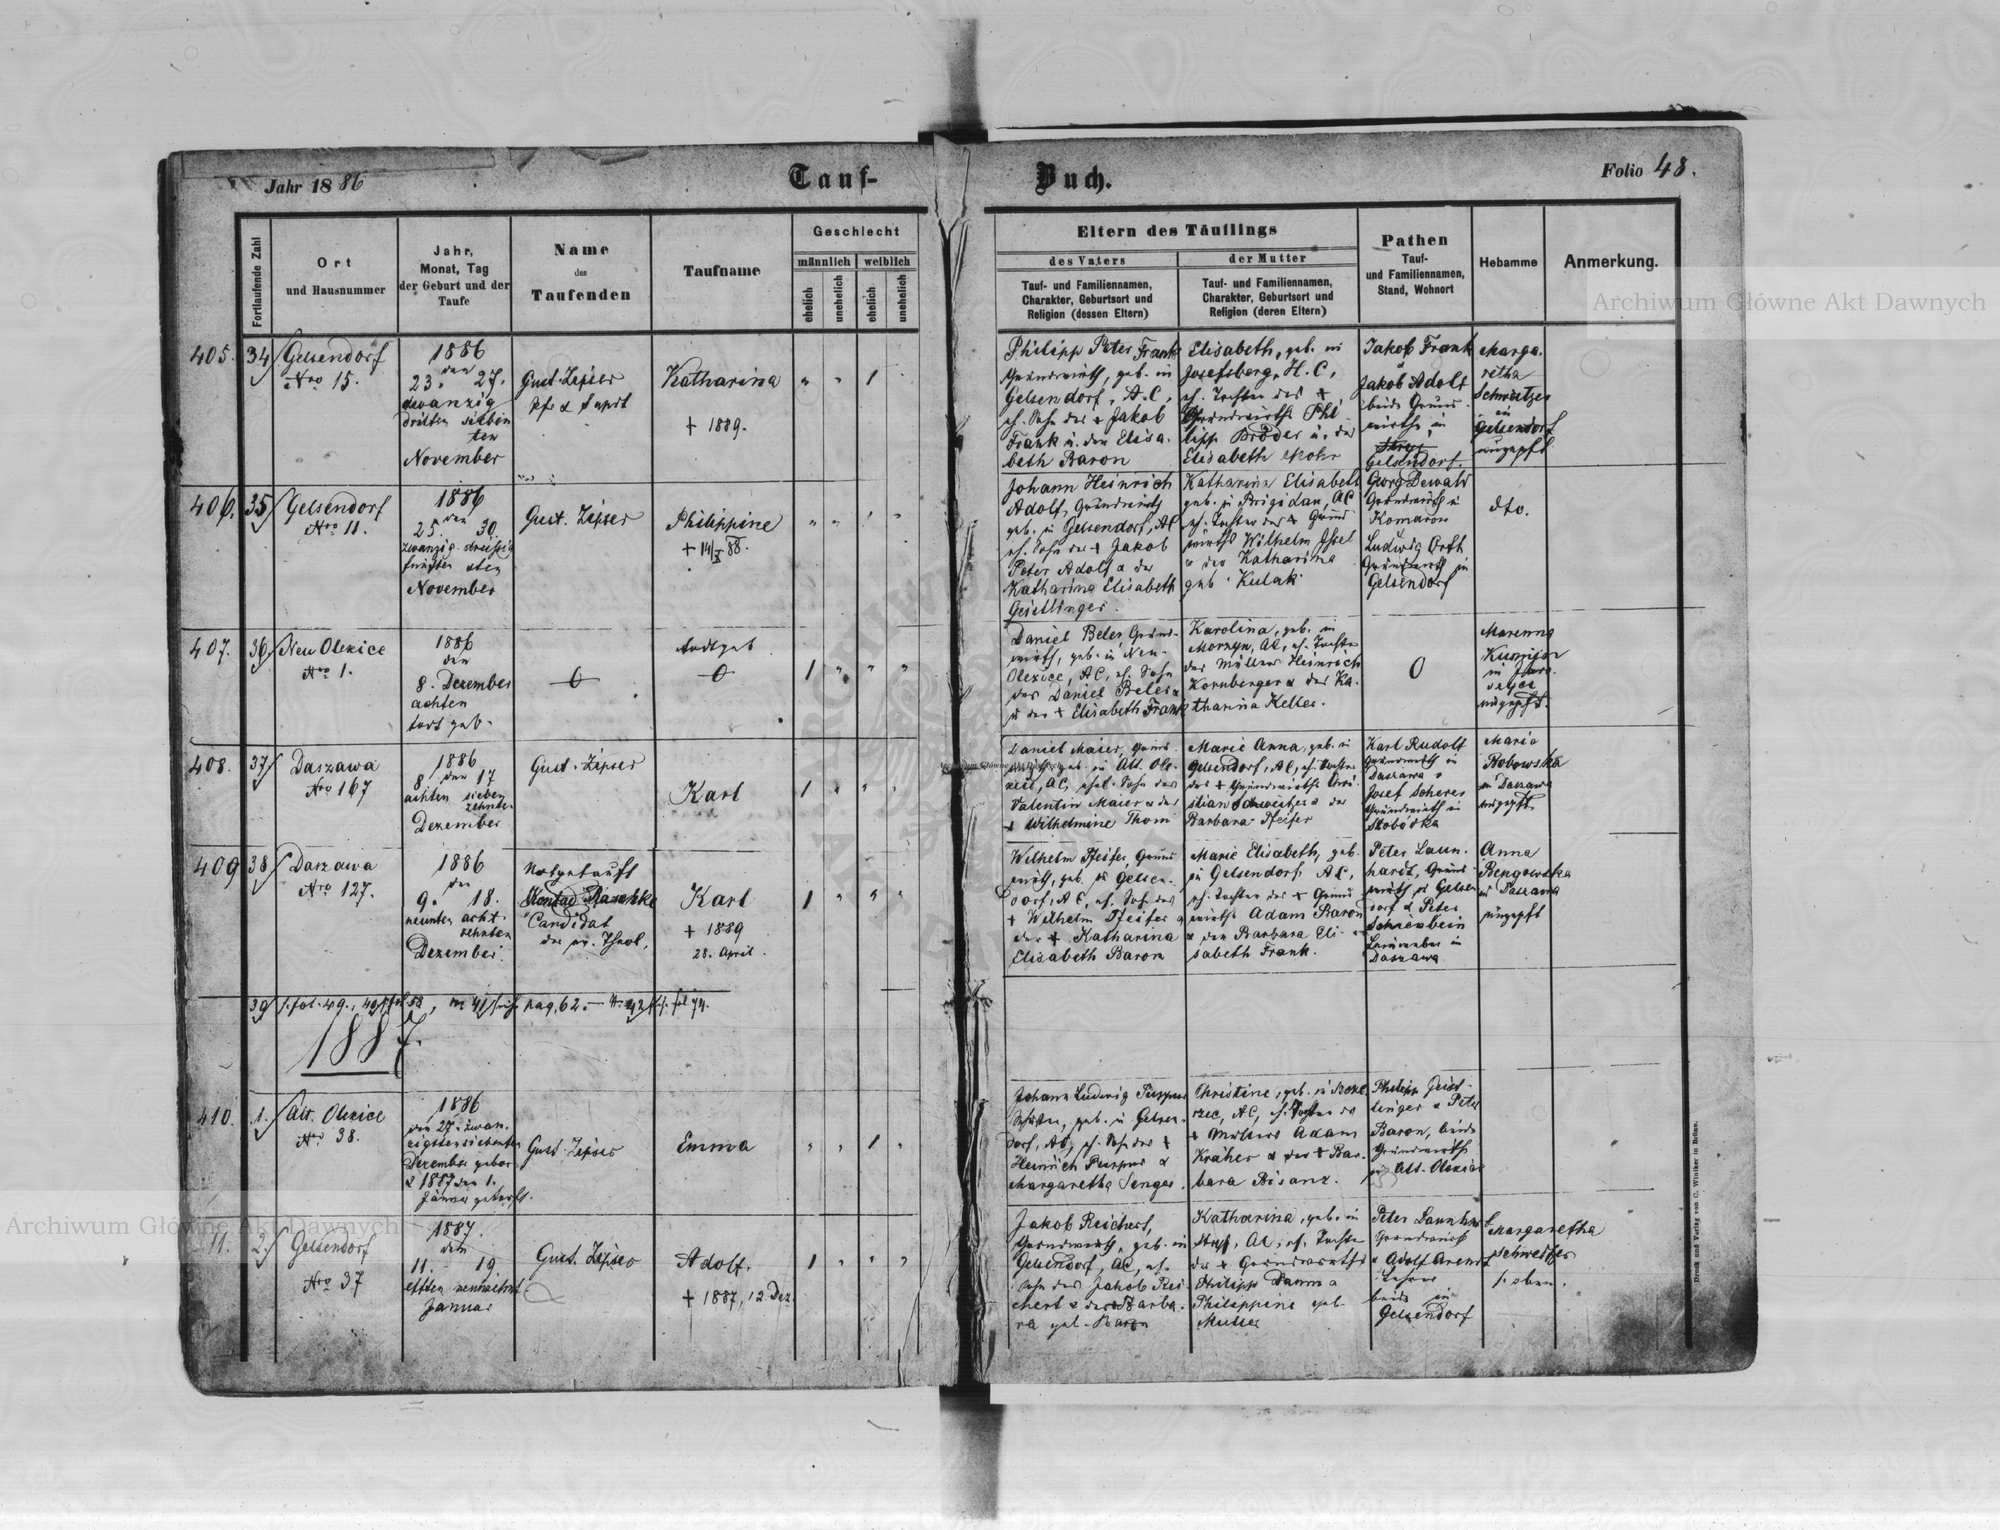 Jahr 1886
Tauf-
Buch.
Folio 48.
Fortlaufende Zahl
Ort
und Hausnummer
Jahr,
Monat, Tag
der Geburt und der
Taufe
Name
des
Taufenden
Taufname
Geschlecht
männlich
weiblich
ehelich
unehelich
ehelich
unehelich
Eltern des Täuflings
des Vaters
der Mutter
Tauf- und Familiennamen,
Charakter, Geburtsort und
Religion (dessen Eltern)
Tauf- und Familiennamen,
Charakter, Geburtsort und
Religion (deren Eltern)
Pathen
Tauf-
und Familiennamen,
Stand, Wohnort
Hebamme
Anmerkung.
405.
34
Gelsendorf
Nro 15.
1886
den
23. 27.
zwanzig
dritten sieben
ten
November
Gust. Zipser
Pfr &
Katharina
+ 1889.
" " 1
Philipp Peter Frank
Grundwirth, geb. in
Gelsendorf, A.C,
eh. Sohn des + Jakob
Frank u. der Elisa-
beth Baron
Elisabeth, geb. in
Josefsberg, H.C,
eh. Tochter des +
Grundwirths Phi
lipp Bröder u. der
Elisabeth Mohr
Jakob Frank
Jakob Adolf
beide Grund-
wirthe in
Stryj
Gelsendorf.
Marga.
retha
Schweitzer
in
Gelsendorf
ungepft
406.
35
Gelsendorf
Nro 11.
1886
den
25. 30.
zwanzig dreissig
fünften sten
November
Gust. Zipser
Philippine
+ 14/X 88.
" " 1 "
Johann Heinrich
Adolf, Grundwirth
geb. in Gelsendorf, AC
eh. Sohn des + Jakob
Peter Adolf & der
Katharina Elisabeth
Geistlinger.
Katharina Elisabeth
geb. in Brigidau, AC
eh. Tochter des + Grund
wirths Wilhelm Issel
& der Katharina
geb. Kulak
Georg Dewald
Grundwirth in
Komarow
Ludwig Orth
Grundwirth in
Gelsendorf
dto.
407.
36
Neu Olexice
Nro 1.
1886
den
8. Dezember
achten
tort geb.
todtgeb
1 " " "
Daniel Beler, Grund-
wirth, geb. in Neu-
Olexice, AC, eh. Sohn
des Daniel Beler &
der + Elisabeth Frank
Karolina, geb. in
Morzyn, AC, eh. Tochter
des Müllers Heinrich
Kornberger & der Ka-
tharina Keller.
0
Marenna
ungepft.
408.
37
Daszawa
Nro 167
1886
8 den 17
achten sieben
zehnten
Dezember
Gust. Zipser
Karl
1 " " "
Daniel Maier, Grund-
wirth geb. in Alt. Ole-
xice, AC, ehel. Sohn des
Valentin Maier & der
+ Wilhelmine Thom
Marie Anna, geb. in
Gelsendorf, AC, eh. Tochter
des + Grundwirths Chri-
stian Schweitzer & der
Barbara Pfeifer
Karl Rudolf
Grundwirth in
Daszawa &
Josef Scherer
Grundwirth in
Slobódka
Maria
Robowska
in Daszawa
ungepft.
409
38
Daszawa
Nro 127.
1886
den
9. 18.
neunten acht-
zehnten
Dezember.
Notgetauft
Candidat
der ev. Theol.
Karl
+ 1889
28. April.
1 " " "
Wilhelm Pfeifer, Grund
wirth, geb. in Gelsen-
dorf, AC, eh. Sohn des
+ Wilhelm Pfeifer &
der + Katharina
Elisabeth Baron
Marie Elisabeth, geb.
in Gelsendorf, AC,
eh. Tochter des + Grund
wirths Adam Baron
& der Barbara Eli-
sabeth Frank.
Peter Laun-
hardt, Grund-
wirth in Gelsen
dorf & Peter
Schienbein
in
Daszawa
Anna
in Daszawa
ungepft
39 s. fol. 49., 40 s. fol. 58, 41 pag. 62. — 42 s. fol. 74.
1887.
410.
1.
Alt. Olexice
Nro 38.
1886
den 27. zwan-
zigstensiebenten
Dezember gebor.
& 1887 den 1.
Jänner getauft.
Gust. Zipser
Emma
" " 1 "
Johann Ludwig Purpur
geb. in Gelsen-
dorf, AC, eh. Sohn des +
Heinrich Purpur &
Margaretha Senger.
Christine, geb. in
AC, eh. Tochter des
+ Müllers Adam
Kräher & der + Bar-
bara Bisanz.
Philipp Geist-
linger & Peter
Baron, beide
Grundwirthe
in Alt. Olexice
11.
2.
Gelsendorf
Nro 37
1887.
den
11. 19
elften neunzehnt.
Januar
Gust. Zipser
Adolf.
+ 1887, 12 Dez
1 " " "
Jakob Reichert,
Grundwirth, geb. in
Gelsendorf, AC, eh.
Sohn des Jakob Rei-
chert & der Barba-
ra geb. Baron
Katharina, geb. in
Stryj, AC, eh. Tochter
des + Grundwirths
Philipp Damm &
Philippine geb.
Müller
Peter Launhardt
Grundwirth
& Adolf Arendt
Lehrer
beide in
Gelsendorf
Margaretha
Schweitzer
s. oben.
Druck und Verlag von C. Winiker in Brünn.
Archiwum Główne Akt Dawnych
Archiwum Główne Akt Dawnych
Archiwum Główne Akt Dawnych